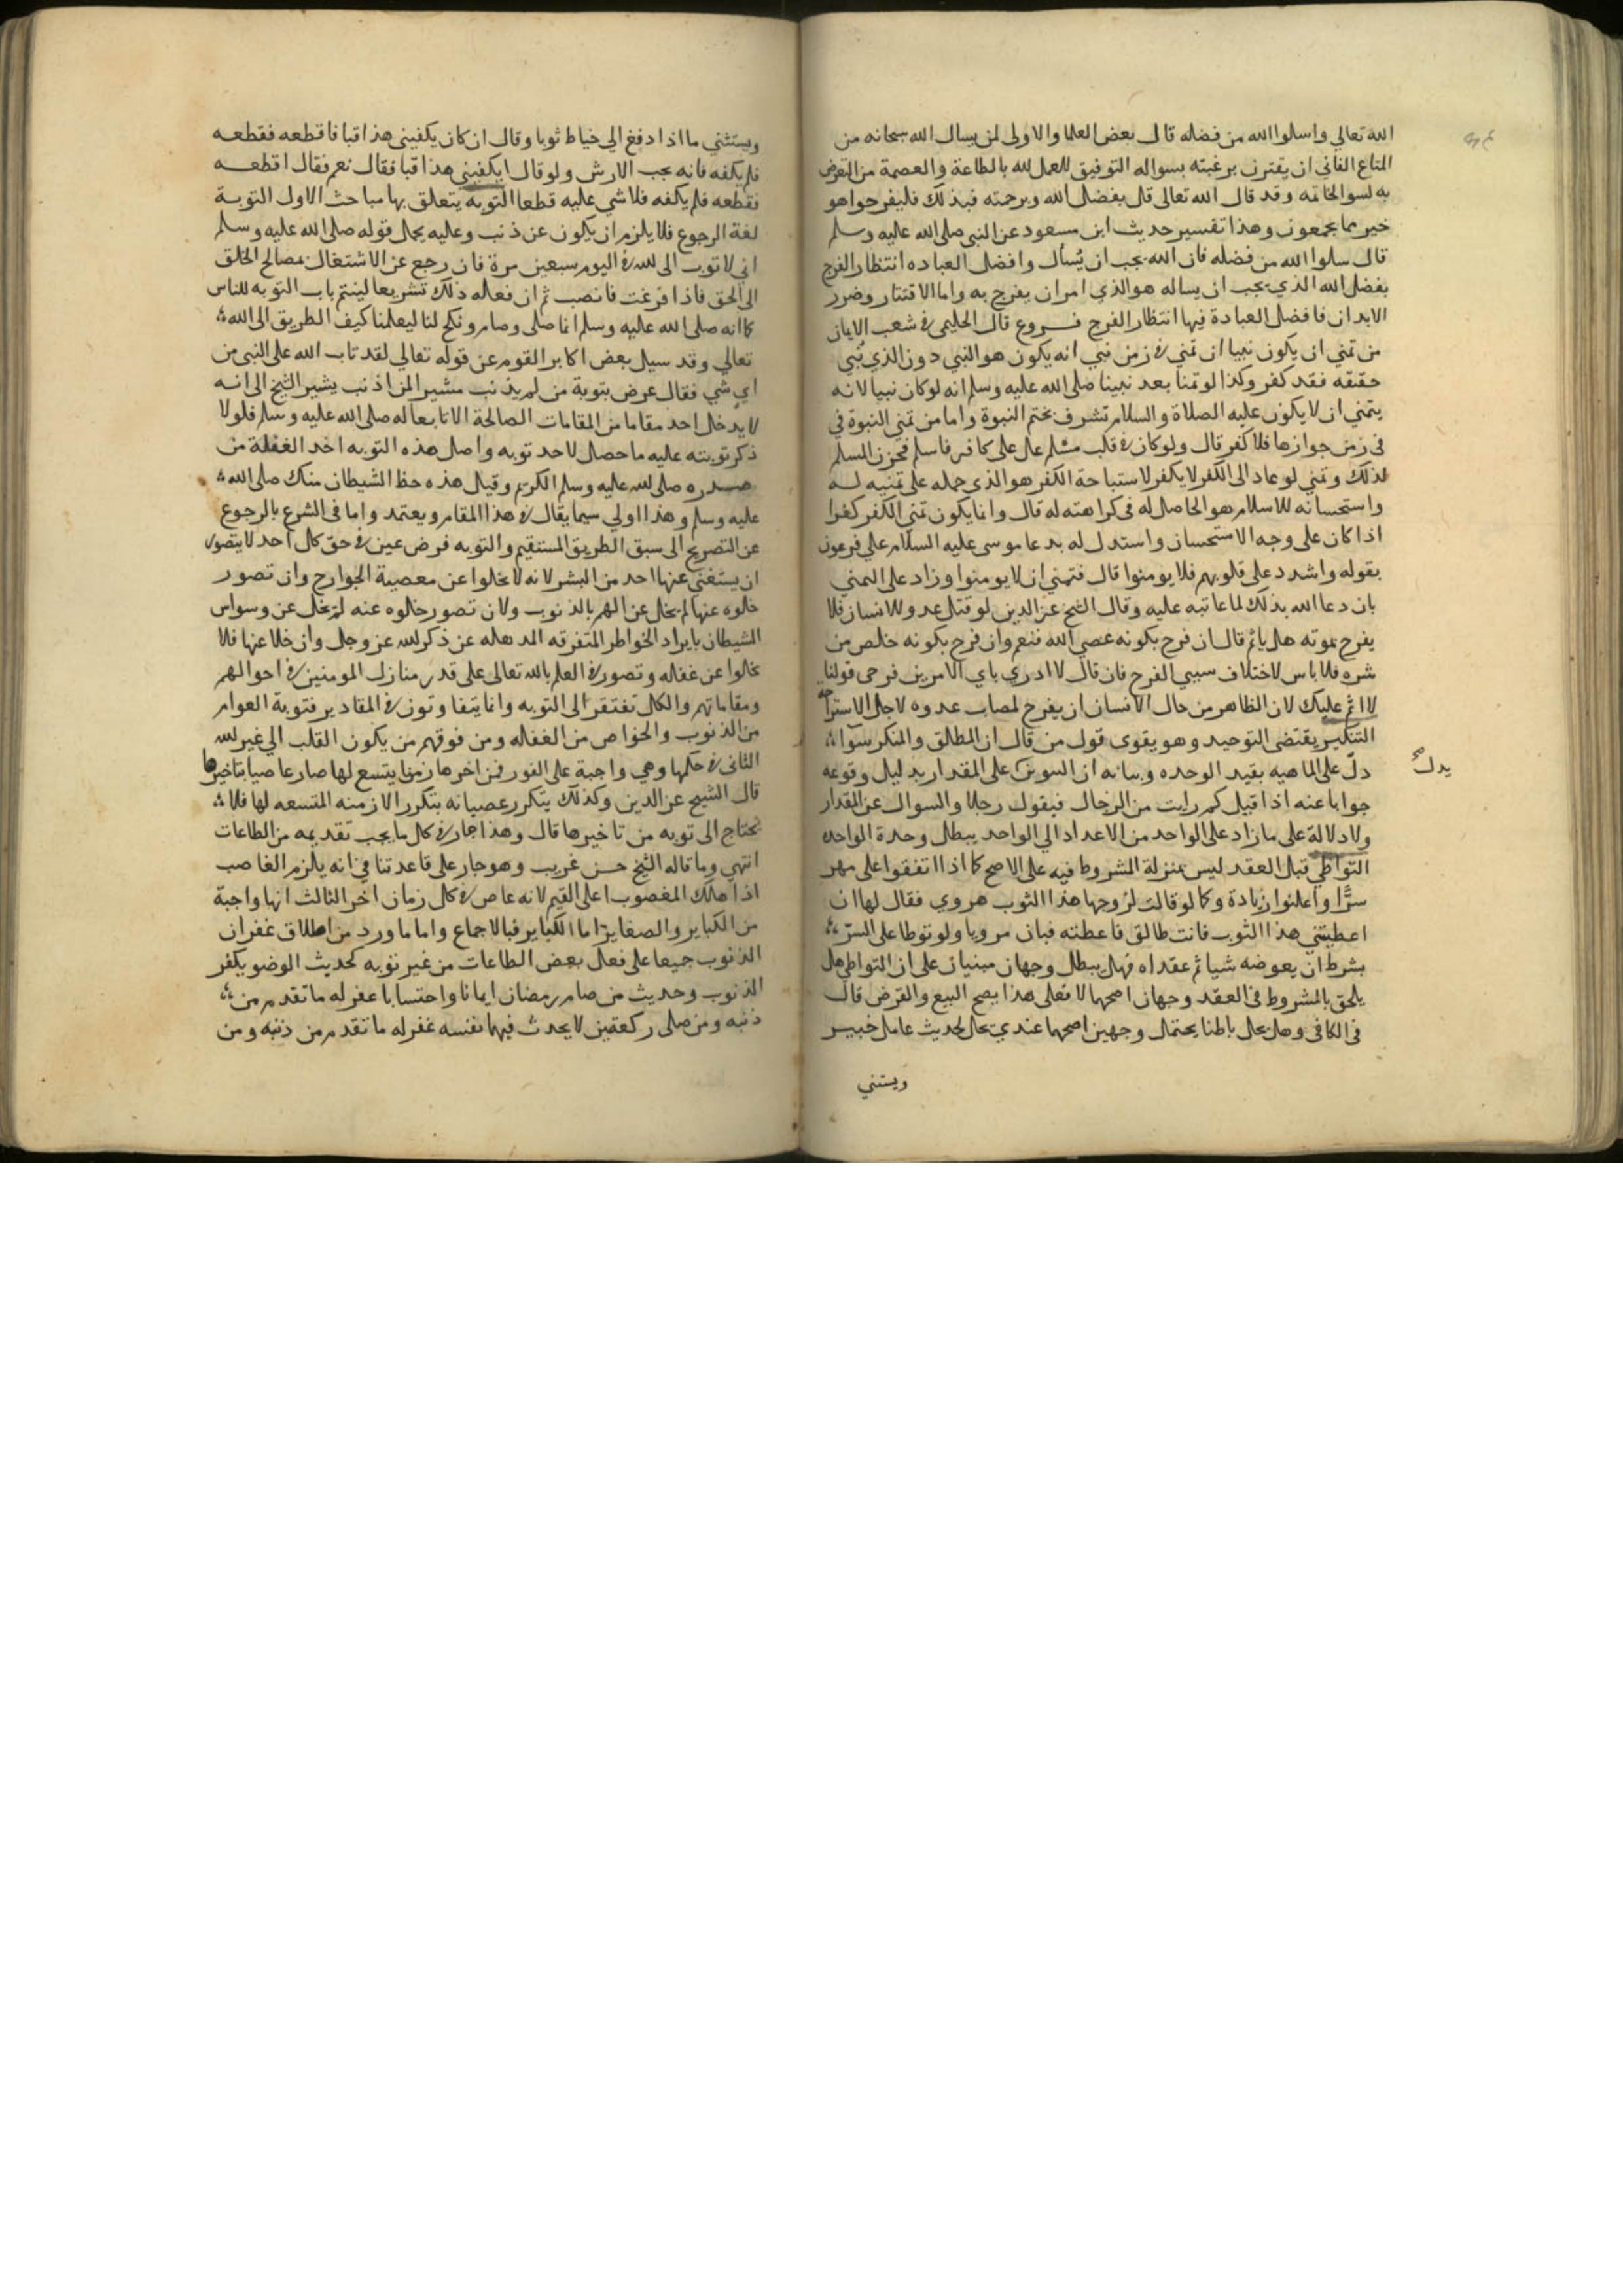 الله تعالي واسلوا الله من فضله قال بعض العلما والاولى لمن يسال الله سبحانه من
المتاع الفاني ان يقترن برغبته بسواله التوفيق للعمل لله بالطاعة والعصمة من التعرض
به لسو الخاتمه وقد قال الله تعالى قل بفضل الله وبرحمته فبذلك فليفرحوا هو
خير مما يجمعون وهذا تفسير حديث ابن مسعود عن النبي صلى الله عليه وسلم
قال سلوا الله من فضله فان الله يحب ان يُسأل وافضل العباده انتظار الفرج
بفضل الله الذي يحب ان يساله هو الذي امر ان يفرح به واما الاقتتار وضرر
الابدان فافضل العبادة فيها انتظار الفرج فروع قال الحليمى فى شعب الايمان
من تمني ان يكون نبيا ان تمني فى زمن نبي انه يكون هو النبي دون الذي نُبي
حققه فقد كفر وكذا لو تمنا بعد نبينا صلى الله عليه وسلم انه لو كان نبيا لانه
يتمني ان لا يكون عليه الصلاة والسلام تشرف بختم النبوة واما من تمني النبوة في
فى زمن جوازها فلا كفر قال ولو كان فى قلب مسلم غل على كافر فاسلم فحزن المسلم
لذلك وتمني لو عاد الى الكفر لا يكفر لاستباحة الكفر هو الذي حمله على تمنيه له
واستحسانه للاسلام هو الحاصل له فى كراهته له قال وانما يكون تمني الكفر كفرا
اذا كان على وجه الاستحسان واستدل له بدعا موسى عليه السلام علي فرعون
بقوله واشدد على قلوبهم فلا يومنوا قال فتمني ان لا يومنوا وزاد على التمني
بان دعا الله بذلك لما عاتبه عليه وقال الشيخ عز الدين لو قتل عدو للانسان فلا
يفرح بموته هل ياثم قال ان فرح بكونه عصي الله فنعم وان فرح بكونه خلص من
شره فلا باس لاختلاف سببي الفرح فان قال لا ادري باي الامرين فرحى قولنا
لا اثم عليك لان الظاهر من حال الانسان ان يفرح لمصاب عدوه لاجل الاستراحه
التنكير يقتضى التوحيد وهو يقوى قول من قال ان المطلق والمنكر سوا
يدل
دلّ على الماهيه بقيد الوحده وبيانه ان السوين على المقدار بدليل وقوعه
جوابا عنه اذا قيل كم رايت من الرجال فيقول رجلا والسوال عن المقدار
ولا دلالة على ما زاد على الواحد من الاعداد الي الواحد يبطل وحدة الواحده
التواطي قبل العقد ليس بمنزلة المشروط فيه على الاصح كما اذا اتفقوا على مهر
سرًّا واعلنوا زيادة وكما لو قالت لزوجها هذا الثوب هروي فقال لها ان
اعطيتني هذا الثوب فانت طالق فاعطته فبان مرويا ولو توطا على السرّ
بشرط ان يعوضه شيا ثم عقداه فهل يبطل وجهان مبنيان على ان التواطي هل
يلحق بالمشروط فى العقد وجهان اصحهما لا فعلى هذا يصح البيع والقرض قال
فى الكافى وهل يحل باطنا يحتمل وجهين اصحهما عندي يحل لحديث عامل خيبر
ويستثني
ويستثني ما اذا دفع الي خياط ثوبا وقال ان كان يكفيني هذا قبا فاقطعه فقطعه
فلم يكفه فانه يجب الارش ولو قال ايكفيني هذا قبا فقال نعم فقال اقطعه
فقطعه فلم يكفه فلا شي عليه قطعا التوبة يتعلق بها مباحث الاول التوبة
لغة الرجوع فلا يلزم ان يكون عن ذنب وعليه يحمل قوله صلى الله عليه وسلم
اني لاتوب الى الله فى اليوم سبعين مرة فان رجع عن الاشتغال بمصالح الخلق
الى الحق فاذا فرغت فانصب ثم ان فعاله ذلك تشريعا لينتم باب التوبه للناس
كما انه صلى الله عليه وسلم انما صلى وصام ونكح لنا ليعلمنا كيف الطريق الى الله
تعالي وقد سيل بعض اكابر القوم عن قوله تعالي لقد تاب الله على النبى من
اي شي فقال عرض بتوبة من لم يذنب مشير المن اذنب يشير الشيخ الى انه
لا يدخل احد مقاما من المقامات الصالحة الا تابعا له صلى الله عليه وسلم فلولا
ذكر توبته عليه ما حصل لاحد توبه واصل هذه التوبه اخد الغفلة من
صدره صلى لله عليه وسلم الكريم وقيل هذه حظ الشيطان منك صلى الله
عليه وسلم وهذا اولى سيما يقال فى هذا المقام ويعتمد واما فى الشرع بالرجوع
عن التصريح الى سبق الطريق المستقيم والتوبه فرض عين فى حق كل احد لا يتصور
ان يستغنى عنها احد من البشر لانه لا يخلوا عن معصية الجوارح وان تصور
خلوه عنها لم يخل عن الهم بالذنوب ولان تصور خلوه عنه لم يخل عن وسواس
الشيطان بايراد الخواطر المتفرقه المدهله عن ذكر لله عز وجل وان خلا عنها فلا
يخلوا عن غفله وتصور فى العلم بالله تعالى على قدر منازل المومنين فى احوالهم
ومقاماتهم والكل تفتقر الى التوبه وانما يتفاوتون فى المقادير فتوبة العوام
من الذنوب والخواص من الغفله ومن فوقهم من يكون القلب الي غير لله
الثانى فى حكمها وهي واجبة على الفور فمن اخرها زمنا يتسع لها صار عاصيا بتاخيرها
قال الشيخ عز الدين وكذلك يتكرر عصيانه بتكرر الازمنه المتسعه لها فلا
يحتاج الى توبه من تاخيرها قال وهذا جار فى كل ما يجب تقديمه من الطاعات
انتهي وما قاله الشيخ حسن غريب وهو جار على قاعدتنا فى انه يلزم الغاصب
اذا هلك المغصوب اعلى القيم لانه عاص فى كل زمان اخر الثالث انها واجبة
من الكباير والصغاير اما الكباير فبالاجماع واما ما ورد من اطلاق غفران
الذنوب جميعا على فعل بعض الطاعات من غير توبه كحديث الوضو يكفر
الذنوب وحديث من صام رمضان ايمانا واحتسابا غفر له ما تقدم من
ذنبه ومن صلى ركعتين لا يحدث فيهما نفسه غفر له ما تقدم من ذنبه ومن